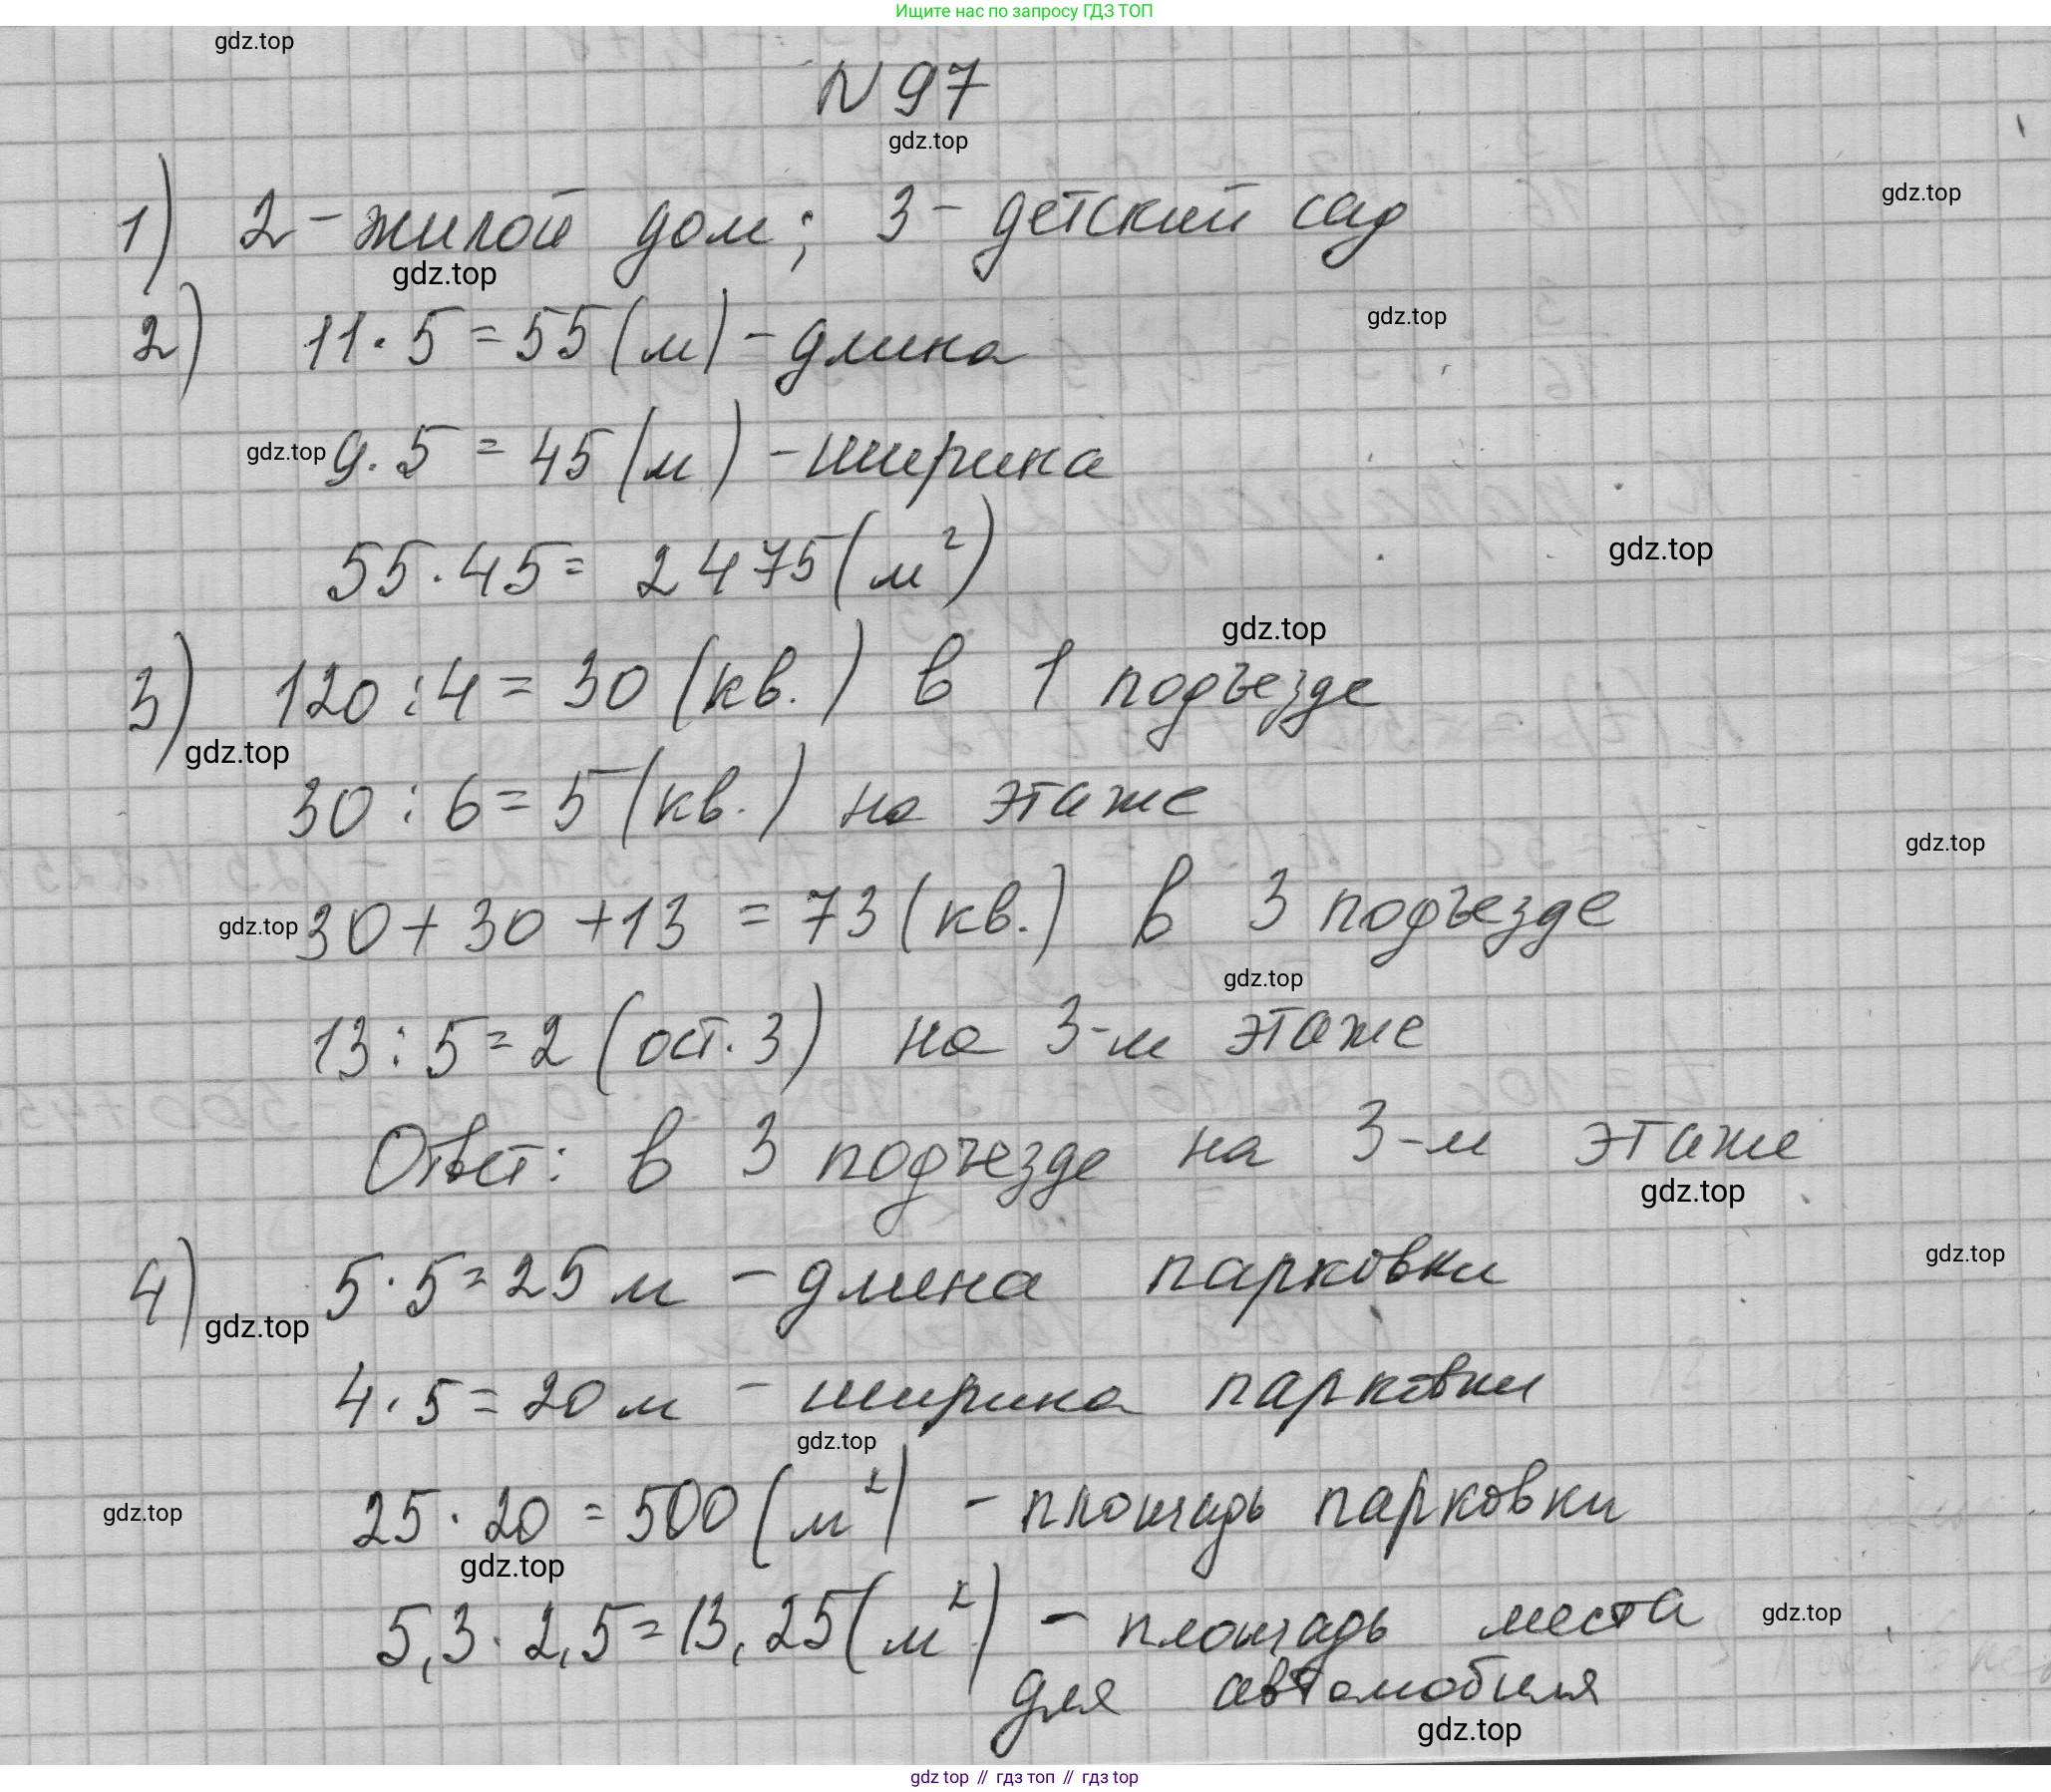 Ищите нас по запросу ГДЗ ТОП
gdz.top
N 97
gdz.top
gdz.top
1) 2 - жилой дом; 3 - детский сад
gdz.top
gdz.top
2) 11 · 5 = 55 (м) - длина
gdz.top 9 · 5 = 45 (м) - ширина
gdz.top
55 · 45 = 2475 (м²)
gdz.top
3) 120 : 4 = 30 (кв.) в 1 подъезде
gdz.top
30 : 6 = 5 (кв.) на этаже
gdz.top
gdz.top 30 + 30 + 13 = 73 (кв.) в 3 подъезде
gdz.top
13 : 5 = 2 (ост. 3) на 3-м этаже
Ответ: в 3 подъезде на 3-м этаже
gdz.top
gdz.top
4) 5 · 5 = 25 м - длина парковки
gdz.top
4 · 5 = 20 м - ширина парковки
gdz.top
gdz.top 25 · 20 = 500 (м²) - площадь парковки
gdz.top
5,3 · 2,5 = 13,25 (м²) - площадь места gdz.top
для автомобиля
gdz.top
gdz top // гдз топ // гдз top